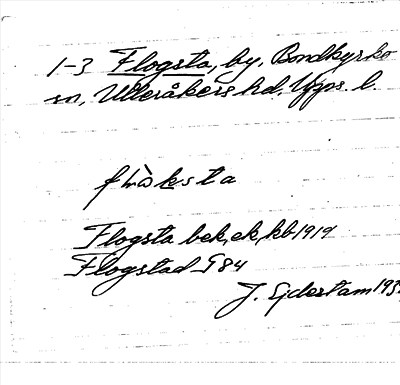 1-3 Flogsta, by, Bondkyrko
sn, Ulleråkers hd. Upps. l.
flⱳàksta
Flogsta bek, ek, kb 1919
Flogstad G84
J. Ejdestam 193